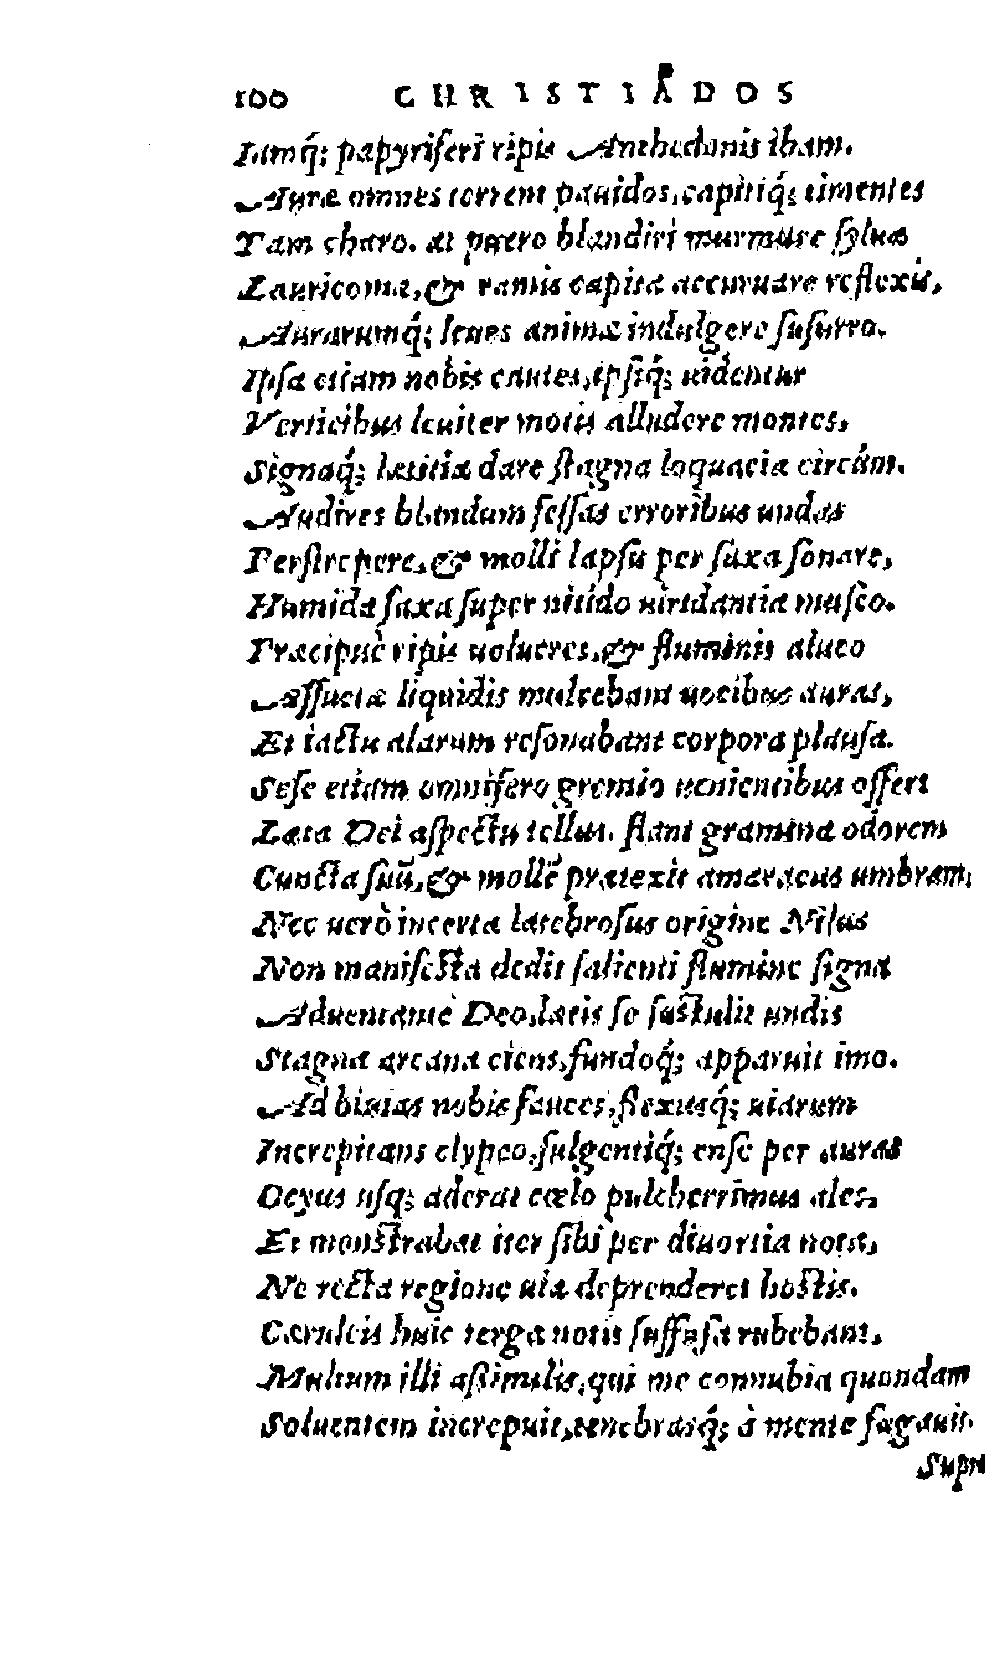 100 CHRISTIADOS
Iamq́; papyriferi ripis Anthedonis ibam.
Auræ omnes terrent pauidos, capitiq́; timentes
Tam charo. at puero blandiri murmure syluæ
Lauricomæ, & ramis capita accuruare reflexis,
Aurarumq́; leues animæ indulgere susurro.
Ipsæ etiam nobis cautes, ipsiq́; uidentur
Verticibus leuiter motis alludere montes,
Signaq́; lætitiæ dare stagna loquacia circúm.
Audires blandum fessas erroribus undas
Perstrepere, & molli lapsu per saxa sonare,
Humida saxa super nitido uiridantia musco.
Præcipuè ripis uolucres, & fluminis alueo
Assuetæ liquidis mulcebant uocibus auras,
Et iactu alarum resonabant corpora plausa.
Sese etiam omnifero gremio uenientibus offert
Læta Dei aspectu tellus. flant gramina odorem
Cuncta suū, & mollē prætexit amaracus umbram,
Nec uerò incerta latebrosus origine Nilus
Non manifesta dedit salienti flumine signa
Aduentante Deo, latis se sustulit undis
Stagna arcana ciens, fundoq́; apparuit imo.
Ad biuias nobis fauces, flexusq́; uiarum
Increpitans clypeo, fulgentiq́; ense per auras
Ocyus usq; aderat cœlo pulcherrimus ales,
Et monstrabat iter sibi per diuortia nota,
Ne recta regione uiæ deprenderet hostis.
Cæruleis huic terga notis suffusa rubebant,
Multum illi assimilis, qui me connubia quondam
Soluentem increpuit, tenebrasq́; à mente fugauit.
Supu